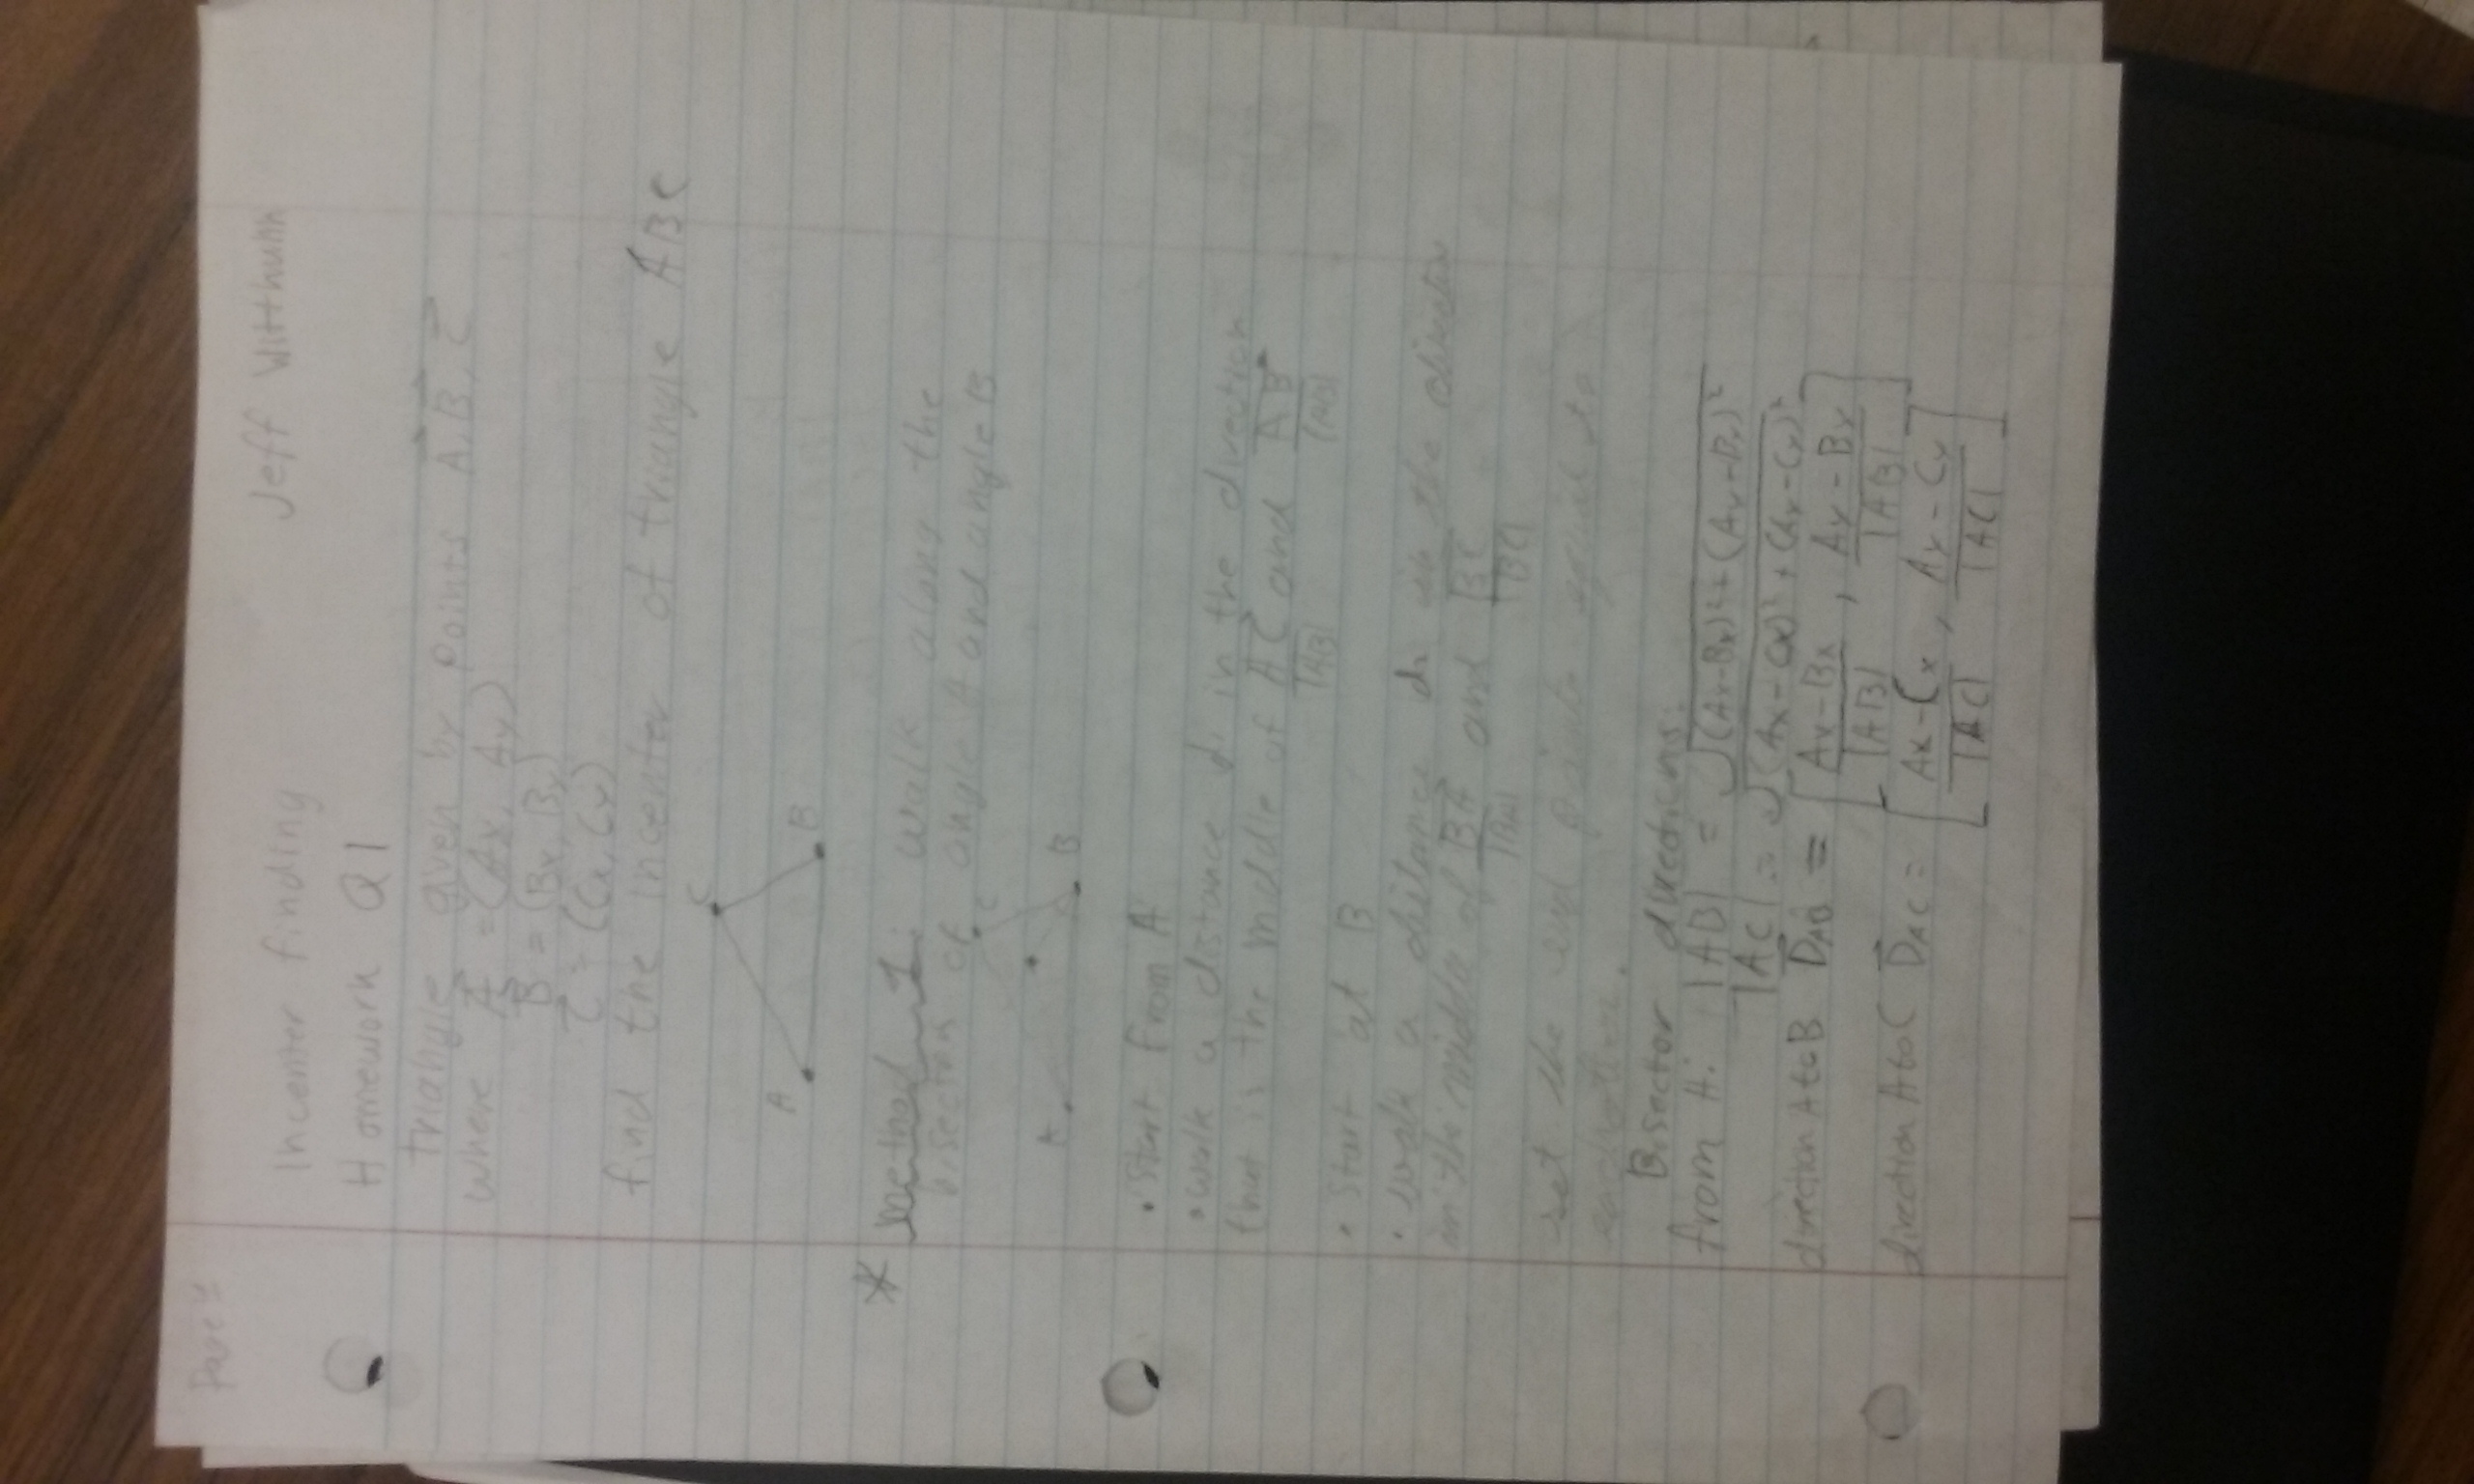 Page 1
Jeff Witthuhn
Incenter finding
Homework Q1
triangle given by points A⃗, B⃗, C⃗
where A⃗ = (Ax, Ay)
B⃗ = (Bx, By)
C⃗ = (Cx, Cy)
find the incenter of triangle ABC
C
A B
* method 1: walk along the
bisector of angle A and angle B
C
A B
• Start from A
• walk a distance d₁ in the direction
that is the middle of AC⃗/|AB| and AB⃗/|AB|
• Start at B
• walk a distance d₂ in the direction
in the middle of BA⃗/|BA| and BC⃗/|BC|
set the end points equal to
eachother.
Bisector directions:
from A: |AB| = √((Ax-Bx)² + (Ay-By)²)
|AC| = √((Ax-Cx)² + (Ay-Cy)²)
direction A to B D⃗AB = [(Ax-Bx)/|AB|, (Ay-By)/|AB|]
direction A to C D⃗AC = [(Ax-Cx)/|AC|, (Ay-Cy)/|AC|]